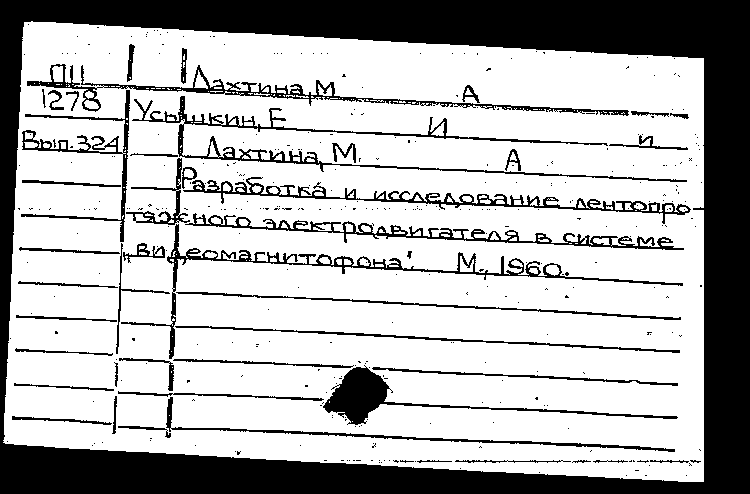 ПЦ Лахтина, М А
1278 Усышкин, Е И и
Вып. 324 Лахтина, М. А
Разработка и исследование лентопро-
тяжного электродвигателя в системе
„видеомагнитофона". М., 1960.